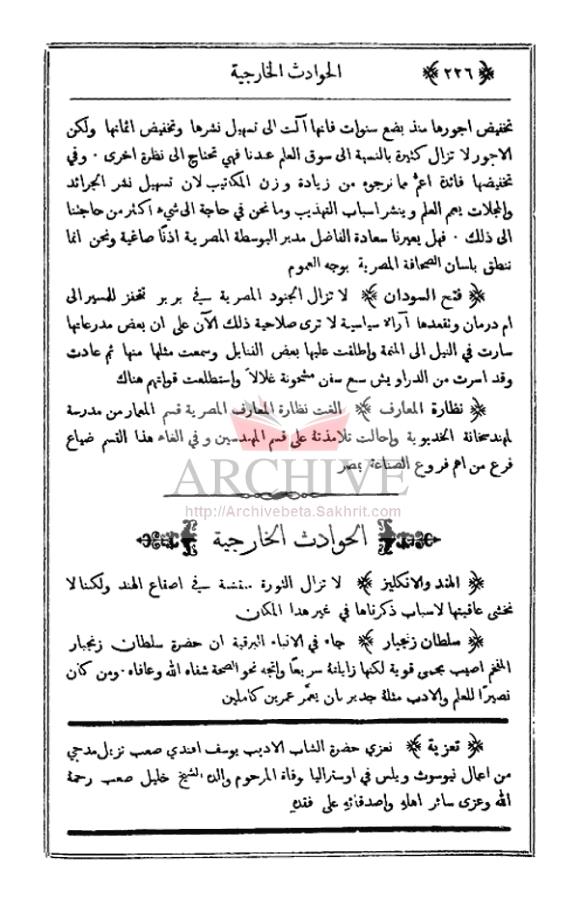 ﴿ ٢٢٦ ﴾ الحوادث الخارجية
تخفيض اجورها منذ بضع سنوات فانها آلت الى تسهيل نشرها وتخفيض اثمانها ولكن
الاجور لا تزال كثيرة بالنسبة الى سوق العلم عندنا فهي تحتاج الى نظرة اخرى ٠ وفي
تخفيضها فائدة اعمُّ مما نرجوه من زيادة وزن المكاتيب لان تسهيل نشر الجرائد
والمجلات يعمم العلم وينشر اسباب التهذيب وما نحن في حاجة الى شيء اكثر من حاجتنا
الى ذلك ٠ فهل يعيرنا سعادة الفاضل مدير البوسطة المصرية اذنًا صاغية ونحن انما
ننطق بلسان الصحافة المصرية بوجه العموم
﴿ فتح السودان ﴾ لا تزال الجنود المصرية في بربر تتحفز للمسير الى
ام درمان وتقعدها آراء سياسية لا ترى صلاحية ذلك الآن على ان بعض مدرعاتها
سارت في النيل الى المتمة واطلقت عليها بعض القنابل وسمعت مثلها منها ثم عادت
وقد اسرت من الدراويش سبع سفن مشحونة غلالاً واستطلعت قواتهم هناك
﴿ نظارة المعارف ﴾ الغت نظارة المعارف المصرية قسم المعمار من مدرسة
المهندسخانة الخديوية واحالت تلامذتهُ على قسم المهندسين وفي الغاء هذا القسم ضياع
فرع من اهم فروع الصناعة بمصر
ARCHIVE
http://Archivebeta.Sakhrit.com
الحوادث الخارجية
﴿ الهند والانكليز ﴾ لا تزال الثورة في اصقاع الهند ولكننا لا
نخشى عاقبتها لاسباب ذكرناها في غير هذا المكان
﴿ سلطان زنجبار ﴾ جاء في الانباء البرقية ان حضرة سلطان زنجبار
المفخم اصيب بحمى قوية لكنها زايلتهُ سريعًا واتجه نحو الصحة شفاه الله وعافاه ٠ ومن كان
نصيرًا للعلم والادب مثلهُ جدير بان يعمَّر عمرين كاملين
﴿ تعزية ﴾ نعزي حضرة الشاب الاديب يوسف افندي صعب نزيل مدجي
من اعمال نيوسوث ويلس في اوستراليا بوفاة المرحوم والده الشيخ خليل صعب رحمهُ
الله وعزى سائر اهله واصدقائه على فقده